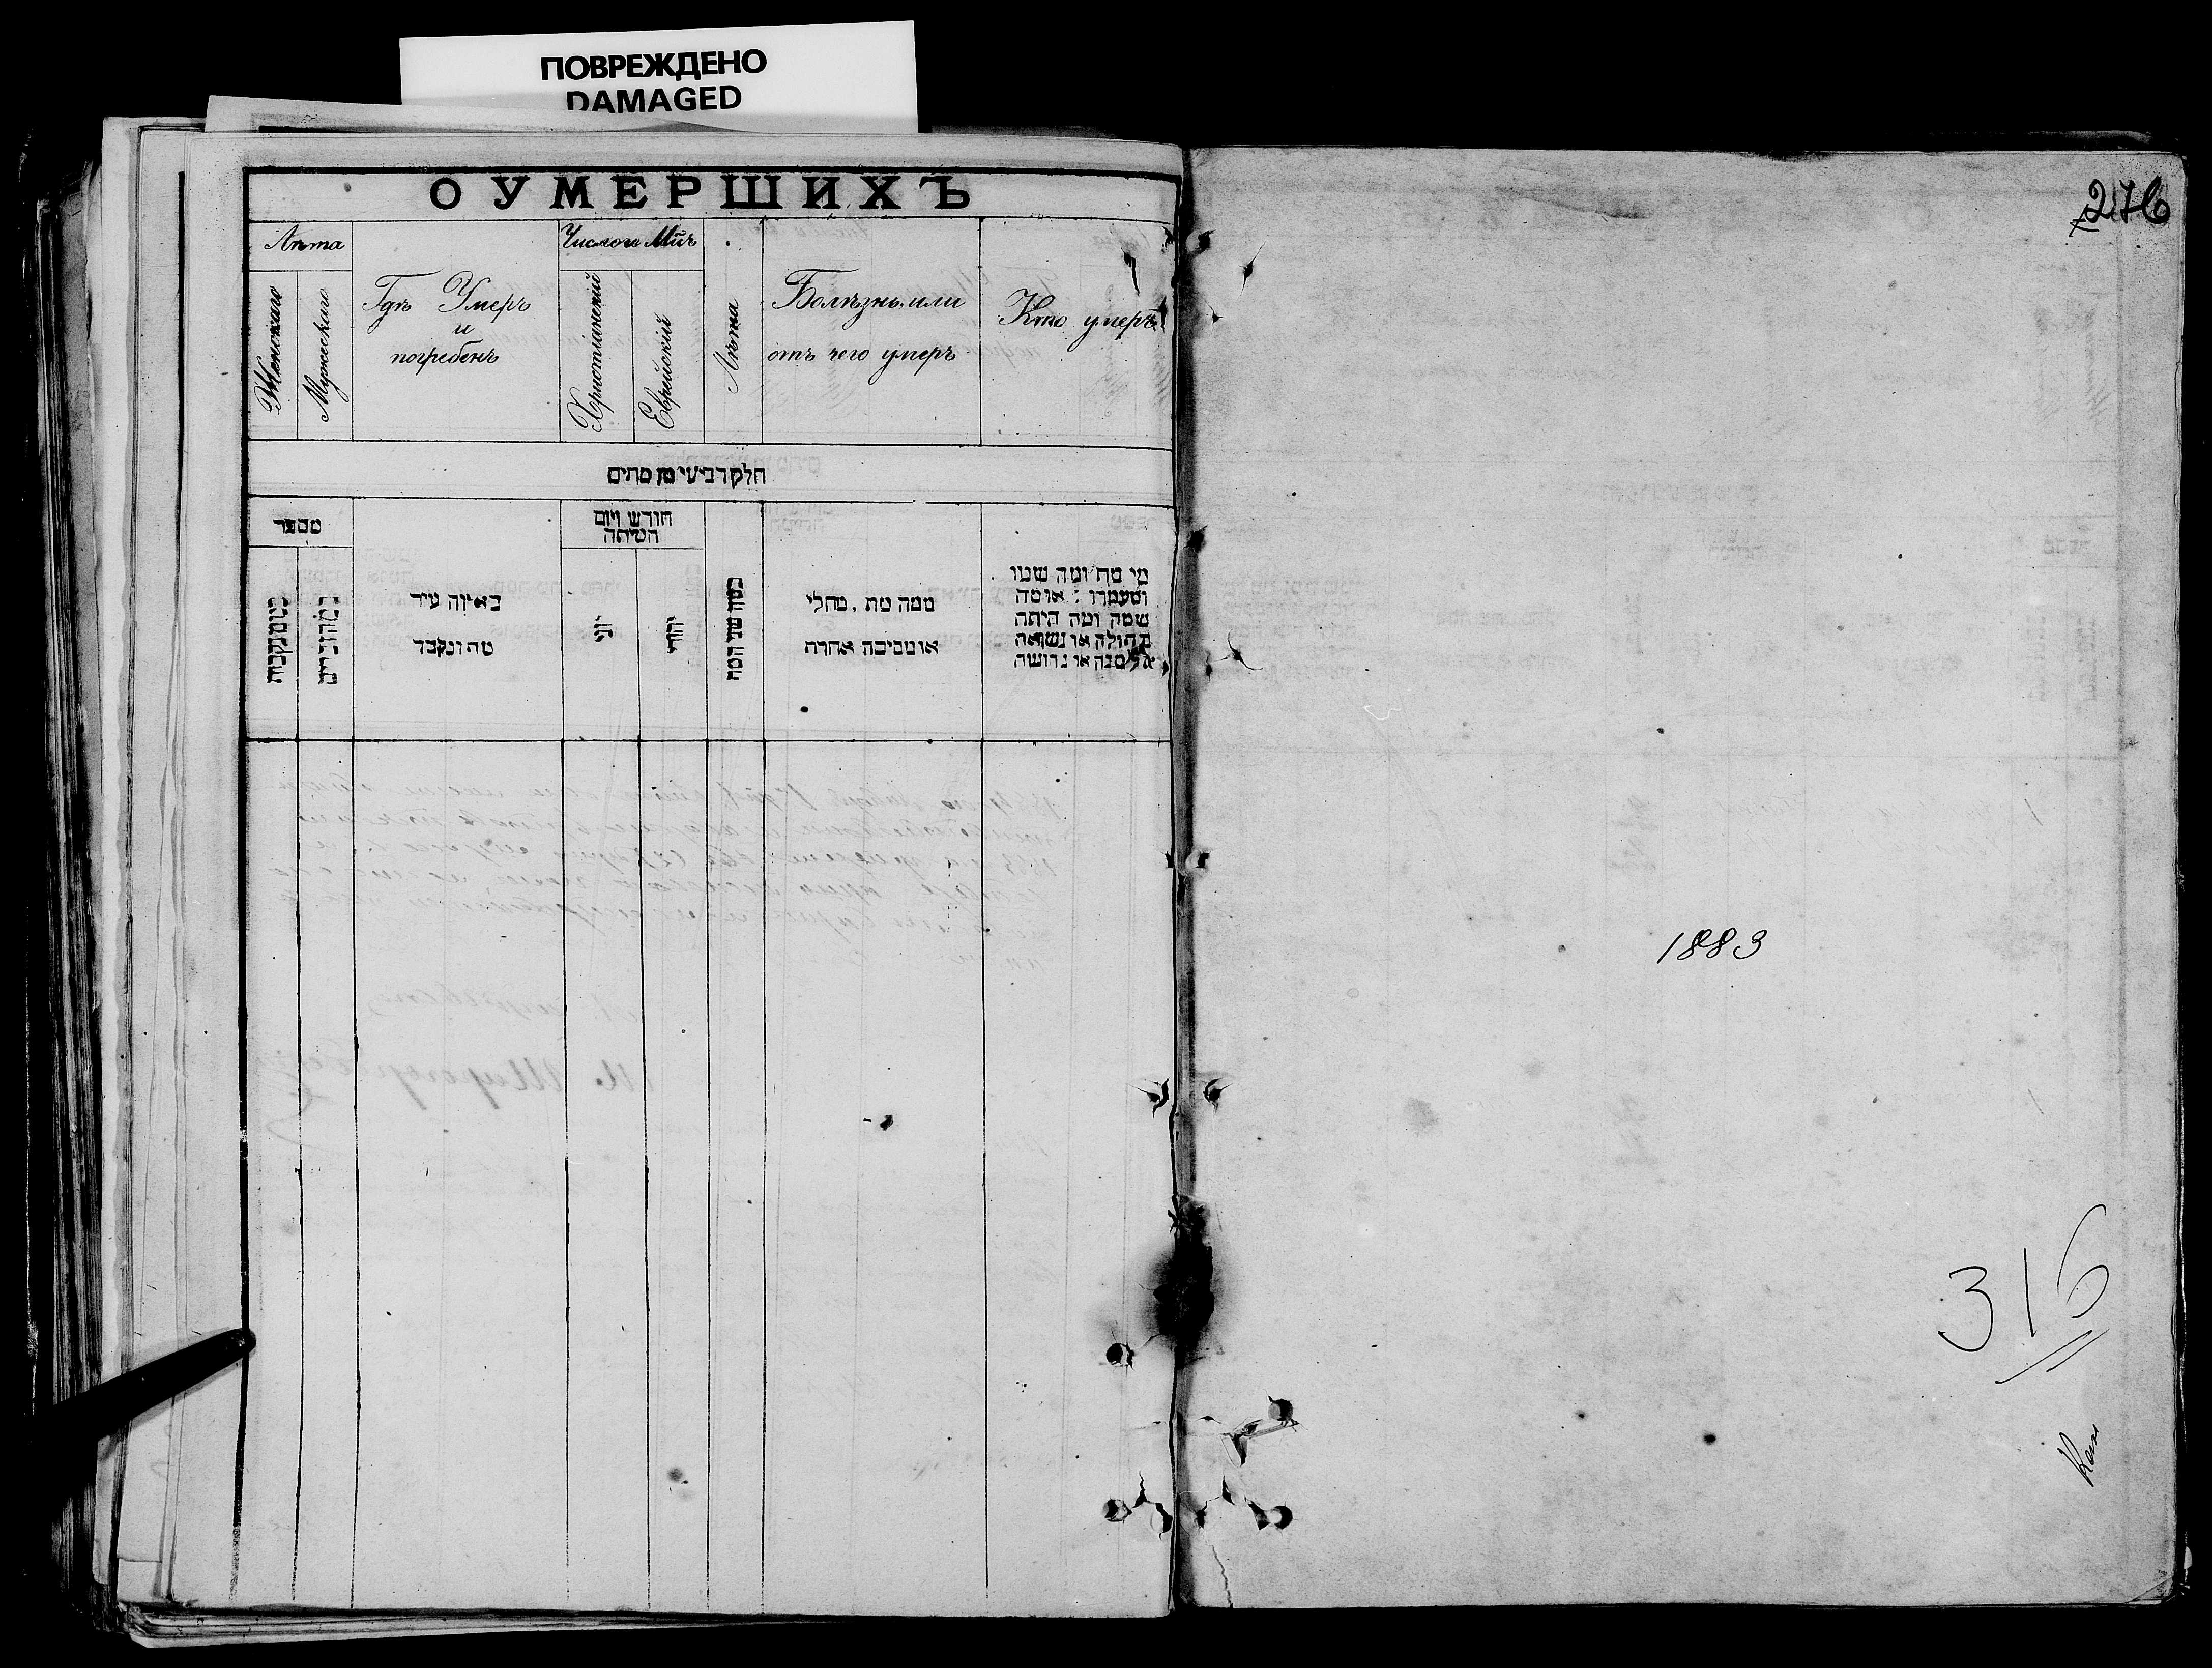 ПОВРЕЖДЕНО
DAMAGED
О УМЕРШИХЪ
Лѣта
Женскаго
Мужескаго
Гдѣ Умеръ
и
погребенъ
Число и Мцъ
Христіанскій
Еврейскій
Лѣта
Болѣзнь или
отъ чего умеръ
Кто умеръ
חלק רביעי מן מתים
מספר
באיזה עיר
מת ונקבר
חודש ויום
המיתה
יוני
יהודי
ממה מת, מחלי
או מסיבה אחרת
מי מת ומה שמו
ומעמדו: או מה
שמה ומה היתה
בתולה או נשואה
אלמנה או גרושה
276
1883
316